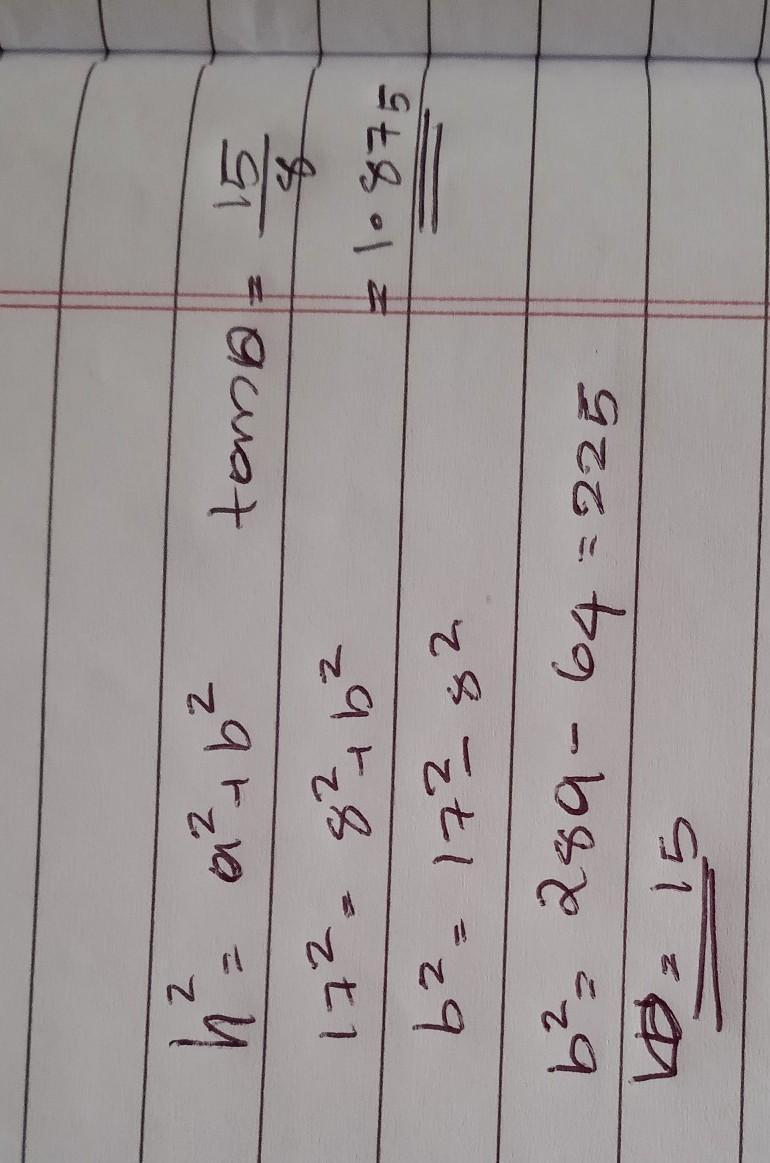 h² = a² + b²
17² = 8² + b²
b² = 17² - 8²
b² = 289 - 64 = 225
b = 15
tanθ = 15/8
= 1.875